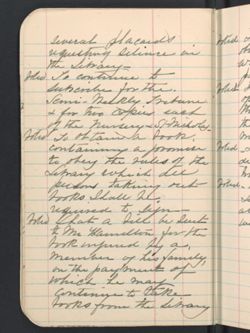 several placards
requesting silence in
the Library—
Voted. To continue to
subscribe for the
Semi-Weekly Tribune
& for two copies each
of the Nursery & St Nicholas.
Voted To obtain a book
containing a promise
to obey the rules of the
Library which all
persons taking out
books shall be
required to sign—
Voted That a bill be sent
to Mr Hamilton for the
book injured by a
member of his family,
on the payment of
which he may
continue to take
books from the Library
Voted
Voted
Voted